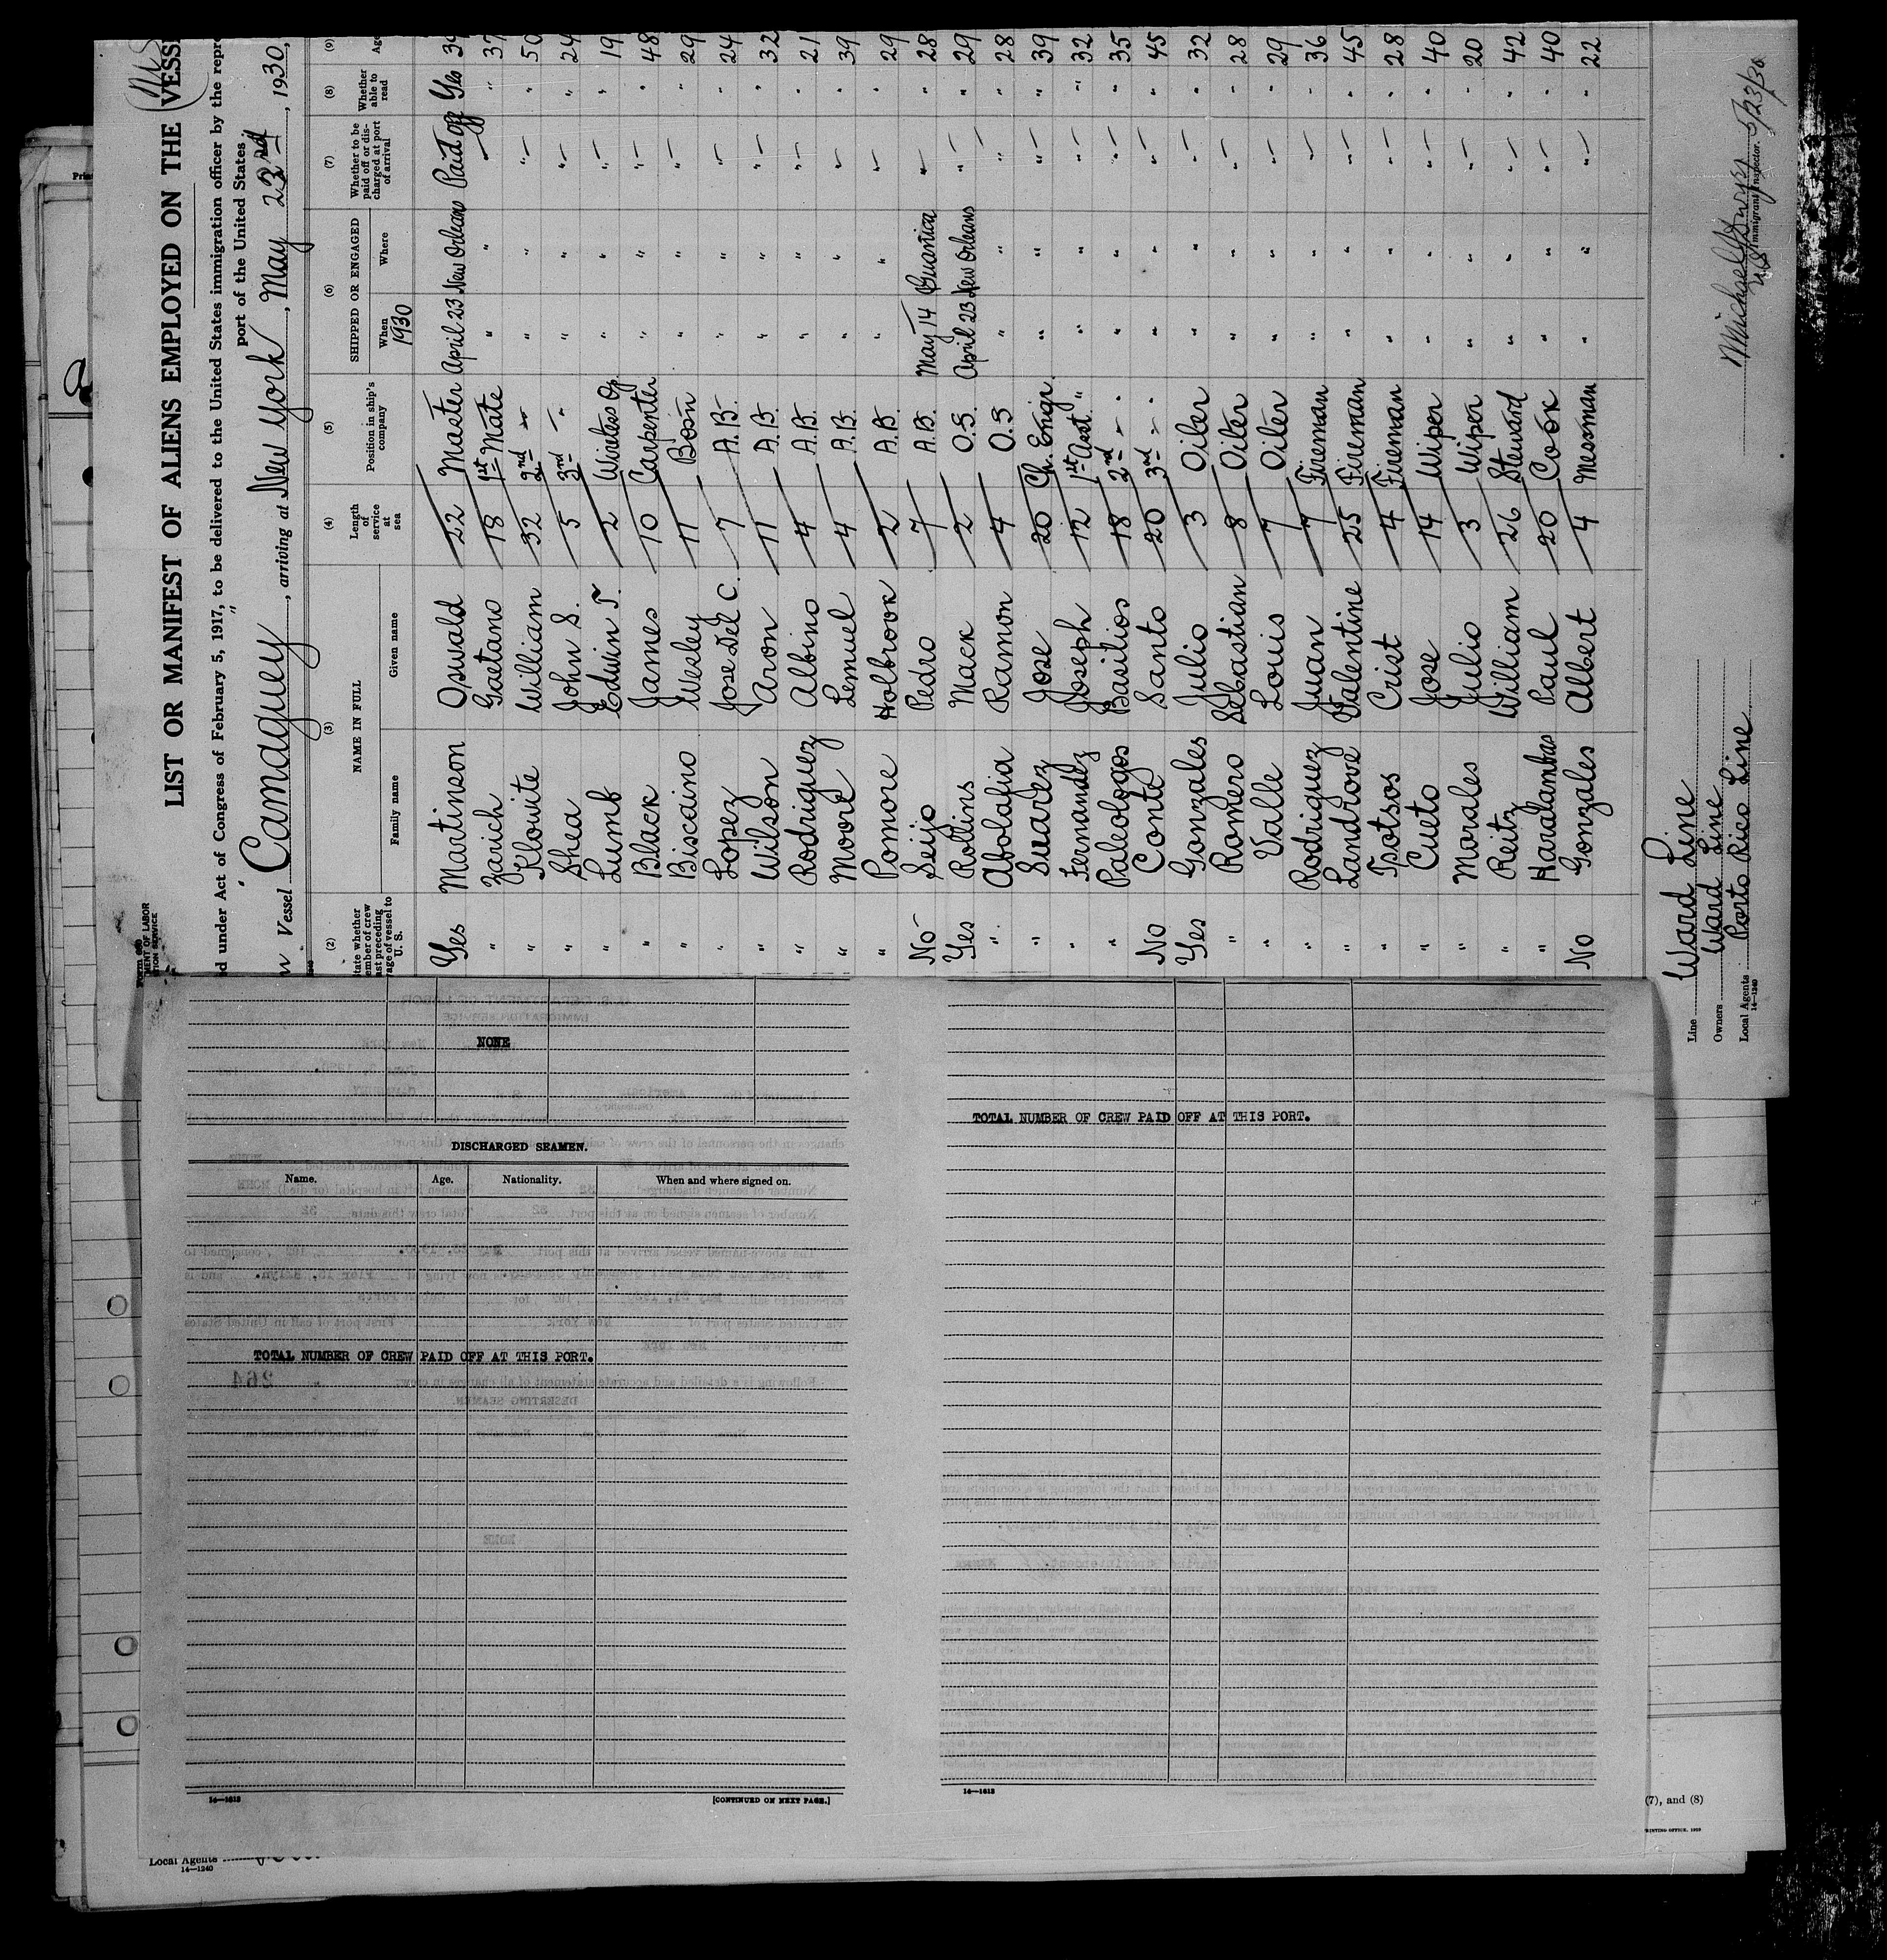 LIST OR MANIFEST OF ALIENS EMPLOYED ON THE VESS
d under Act of Congress of February 5, 1917, to be delivered to the United States immigration officer by the repr
port of the United States
Vessel Camaguey, arriving at New York, May 23rd, 1930,
(2) (3) (4) (5) (6) (7) (8) (9)
tate whether ember of crew ast preceding yage of vessel to U. S.
NAME IN FULL
Family name Given name
Length of service at sea
Position in ship's company
SHIPPED OR ENGAGED
When 1930 Where
Whether to be paid off or discharged at port of arrival
Whether able to read
Ag
Yes Martinson Oswald 22 Master April 23 New Orleans Paid off Yes 39
" Zarich Gaetano 18 1st Mate " " " " 37
" Klouite William 32 2nd " " " " " 50
" Shea John S. 5 3rd " " " " " 24
" Lumb Edwin T. 2 Wireless Op. " " " " 19
" Black James 10 Carpenter " " " " 48
" Biscaino Wesley 11 Bosn " " " " 29
" Lopez Jose Del C. 7 A.B. " " " " 24
" Wilson Aron 11 A.B. " " " " 32
" Rodriguez Albino 4 A.B. " " " " 21
" Moore Lemuel 4 A.B. " " " " 39
" Pomore Holbrook 2 A.B. " " " " 29
No Seijo Pedro 7 A.B. May 14 Guanica " " 28
Yes Rollins Mack 2 O.S. April 23 New Orleans " " 29
" Abolafia Ramon 4 O.S " " " " 28
" Suarez Jose 20 Ch. Engr. " " " " 39
" Fernandez Joseph 12 1st Asst " " " " " 32
" Paleologos Basilios 18 2nd " " " " " " 35
No Conto Santo 20 3rd " " " " " " 45
Yes Gonzales Julio 3 Oiler " " " " 32
" Romero Sebastian 8 Oiler " " " " 28
" Valle Louis 7 Oiler " " " " 29
" Rodriguez Juan 7 Fireman " " " " 36
" Landrove Valentine 25 Fireman " " " " 45
" Tsotsos Crist 4 Fireman " " " " 28
" Cueto Jose 14 Wiper " " " " 40
" Morales Julio 3 Wiper " " " " 20
" Reitz William 26 Steward " " " " 42
" Haralambas Paul 20 Cook " " " " 40
No Gonzales Albert 4 Messman " " " " 22
Line Ward Line
Owners Ward Line
Local Agents Porto Rico Line
14—1240
5/23/30
Immigrant Inspector.
NONE
DISCHARGED SEAMEN.
Name. Age. Nationality. When and where signed on.
TOTAL NUMBER OF CREW PAID OFF AT THIS PORT.
14—1613
[CONTINUED ON NEXT PAGE.]
TOTAL NUMBER OF CREW PAID OFF AT THIS PORT.
14—1613
(7), and (8)
Local Agents
14—1240